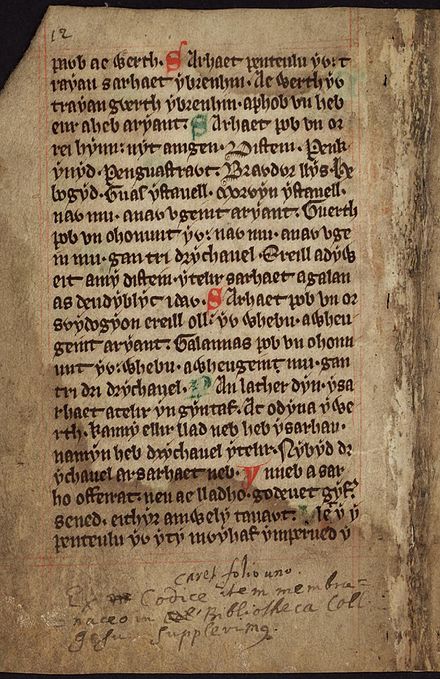 12
pavb ae werth. Sarhaet penteulu yv: t
rayan sarhaet ybrenhin. Ae werth yv
trayan gwerth ybrenhin. aphob vn heb
eur aheb aryant: Sarhaet pob vn or
rei hynn: nyt amgen. Distein. Penk
ynyd. Penguastravt. Bravdvr llys. He
bogyd. Guas ystauell. Morvyn ystauell.
nav mu. anav vgeint aryant. Guerth
pob vn ohonunt yv: nav mu. anav vge
in mu. gan tri drychauel. Ereill adyw
eit amy distein. ytelir sarhaet agalan
as deudyblyc idav. Sarhaet pob vn or
svydogyon ereill oll: yv whebu. awheu
geint aryant. Galannas pob vn ohonu
nt yv: whebu. awheugeint mu. gan
tri dri drychauel. Pan lather dyn. ysa
rhaet atelir yn gyntaf. Ac odyna ywe
rth. kanny ellir llad neb heb ysarhau.
namyn heb drychauel ytelir. Nybyd dr
ychauel ar sarhaet neb. Y nneb a sar
ho offeirat. neu ae lladho. godeuet gyfr
sened. eithyr am wely tauavt: lle y
penteulu yv yty mvyhaf ymperued y
caret folio uno.
Ex Codice item membra=
naceo in Bibliotheca Coll:
Jesu Supplevimus.